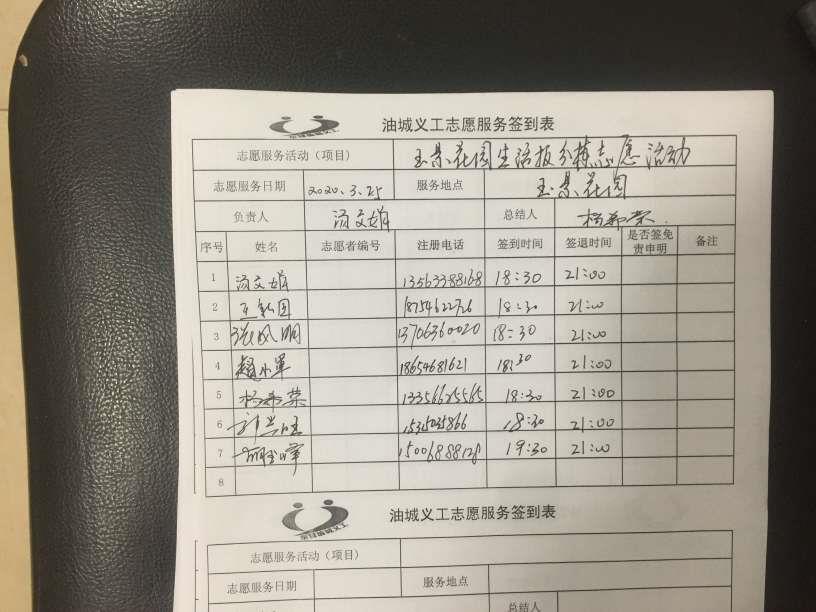 油城义工志愿服务签到表
志愿服务活动（项目） 玉景花园生活报分拣志愿活动
志愿服务日期 2020.3.25 服务地点 玉景花园
负责人 汤文娟 总结人 杨希荣
序号 姓名 志愿者编号 注册电话 签到时间 签退时间 是否签免责申明 备注
1 汤文娟 13563388168 18:30 21:00
2 18754622726 18:30 21:00
3 张凤明 13706360020 18:30 21:00
4 赵小军 18654681621 18:30 21:00
5 杨希荣 13356625565 18:30 21:00
6 18:30 21:00
7 15006888128 19:30 21:00
8
油城义工志愿服务签到表
志愿服务活动（项目）
志愿服务日期 服务地点
总结人